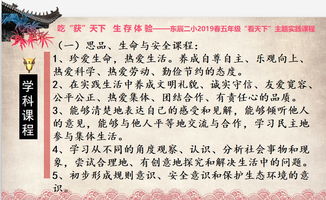 吃“获”天下 生存体验——东辰二小2019春五年级“看天下”主题实践课程
学科课程
（一）思品、生命与安全课程：
1、珍爱生命，热爱生活。养成自尊自主、乐观向上、
热爱科学、热爱劳动、勤俭节约的态度。
2、在实践生活中养成文明礼貌、诚实守信、友爱宽容、
公平公正、热爱集体、团结合作、有责任心的品质。
3、能够清楚地表达自己的感受和见解，能够倾听他人
的意见，能够与他人平等地交流与合作，学习民主地
参与集体生活。
4、学习从不同的角度观察、认识、分析社会事物和现
象，尝试合理地、有创意地探究和解决生活中的问题。
5、初步形成规则意识、安全意识和保护生态环境的意
识。